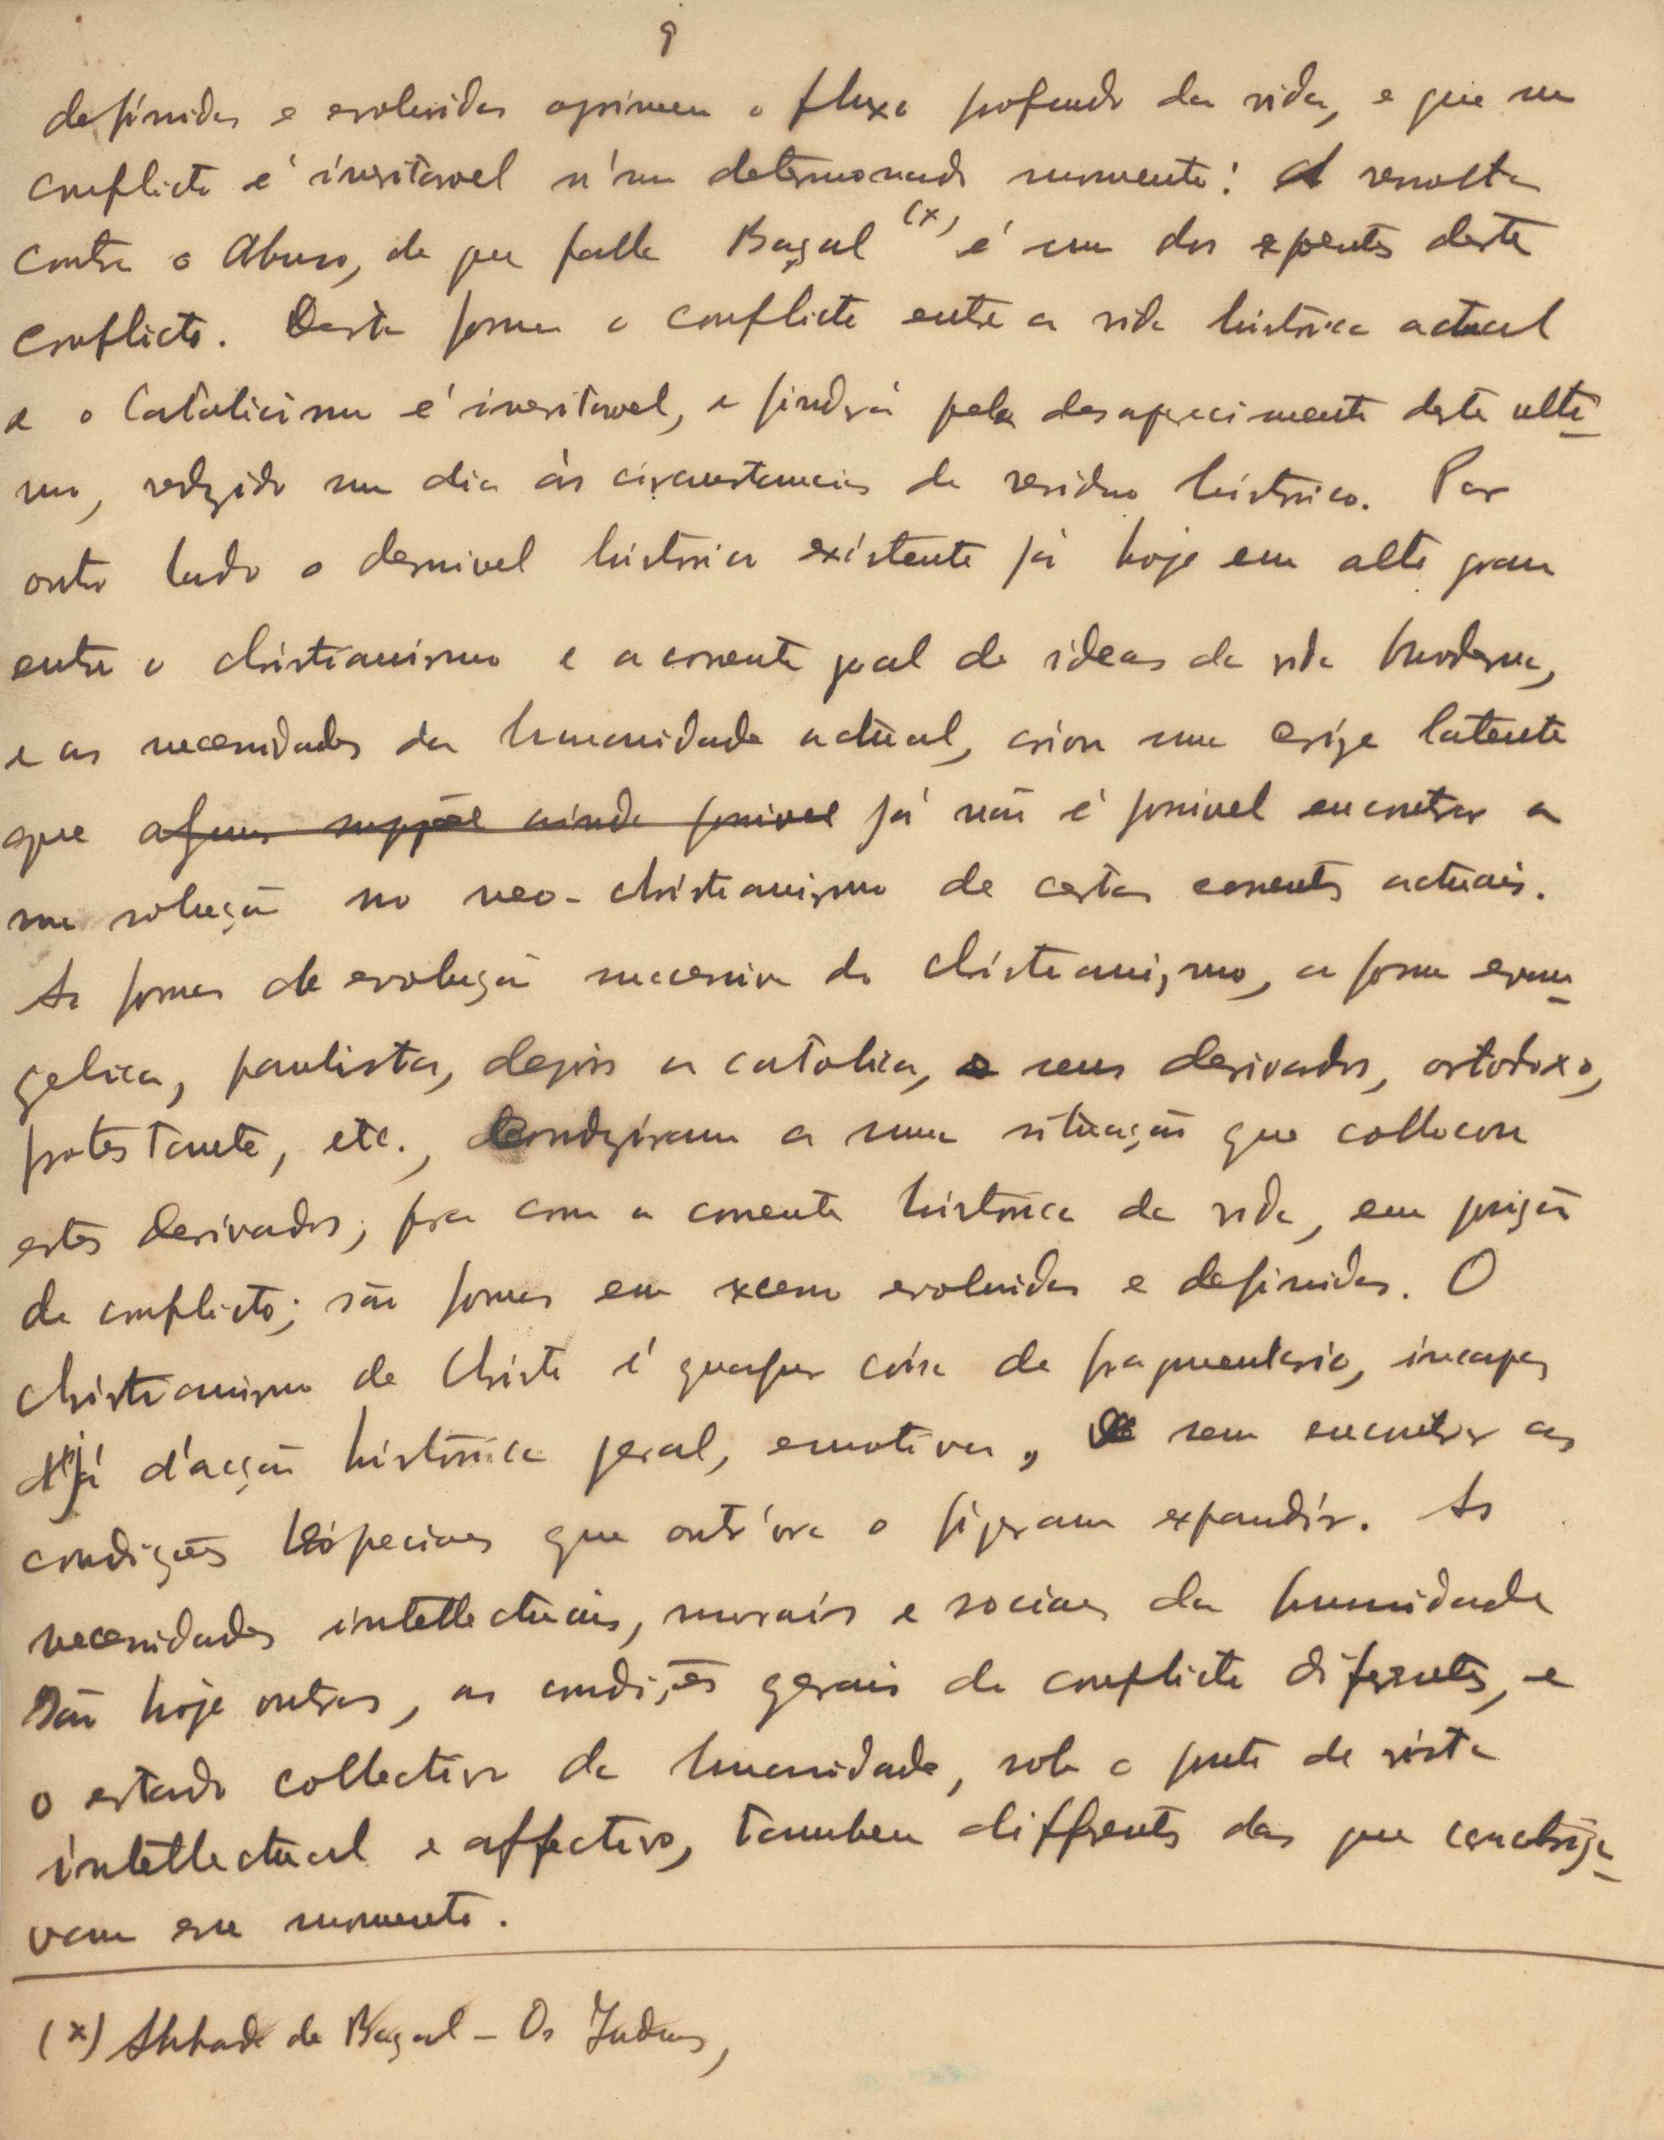 9
definidas e evoluidas oprimem o fluxo profundo da vida, e que um
conflicto é inevitavel n'um determinado momento: A revolta
contra o Abuso, de que falla Baçal (x) é um dos expoentes deste
conflicto. Desta forma o conflicto entre a vida historica actual
e o Catolicismo é inevitavel, e findará pela desaparecimento deste ulti-
mo, reduzido um dia ás circunstancias de residuo historico. Por
outro lado o desnivel historico existente já hoje em alto grau
entre o christianismo e a corrente geral de ideas da vida moderna,
e as necessidades da humanidade actual, criou uma crize latente
que alguns suppõe ainda possivel já não é possivel encontrar a
sua solução no neo-christianismo de certas correntes actuais.
As formas de evolução successiva do christianismo, a forma evan-
gelica, paulista, depois a catolica, e seus derivados, ortodoxo,
protestante, etc., conduziram a uma situação que collocou
estes derivados, para com a corrente historica da vida, em posição
de conflicto; são formas em excesso evoluidas e definidas. O
christianismo de Christo é qualquer coisa de fragmentario, incapaz
já d'acção historica geral, emotiva, sem encontrar as
condições especiaes que outr'ora o fizeram expandir. As
necessidades intellectuais, morais e sociaes da humidade
são hoje outras, as condições gerais de conflicto diferentes, e
o estado collectivo da humanidade, sob o ponto de vista
intellectual e affectivo, tambem differentes das que caracteriza-
vam esse momento.
(x) Abbade de Baçal - Os Judeus,